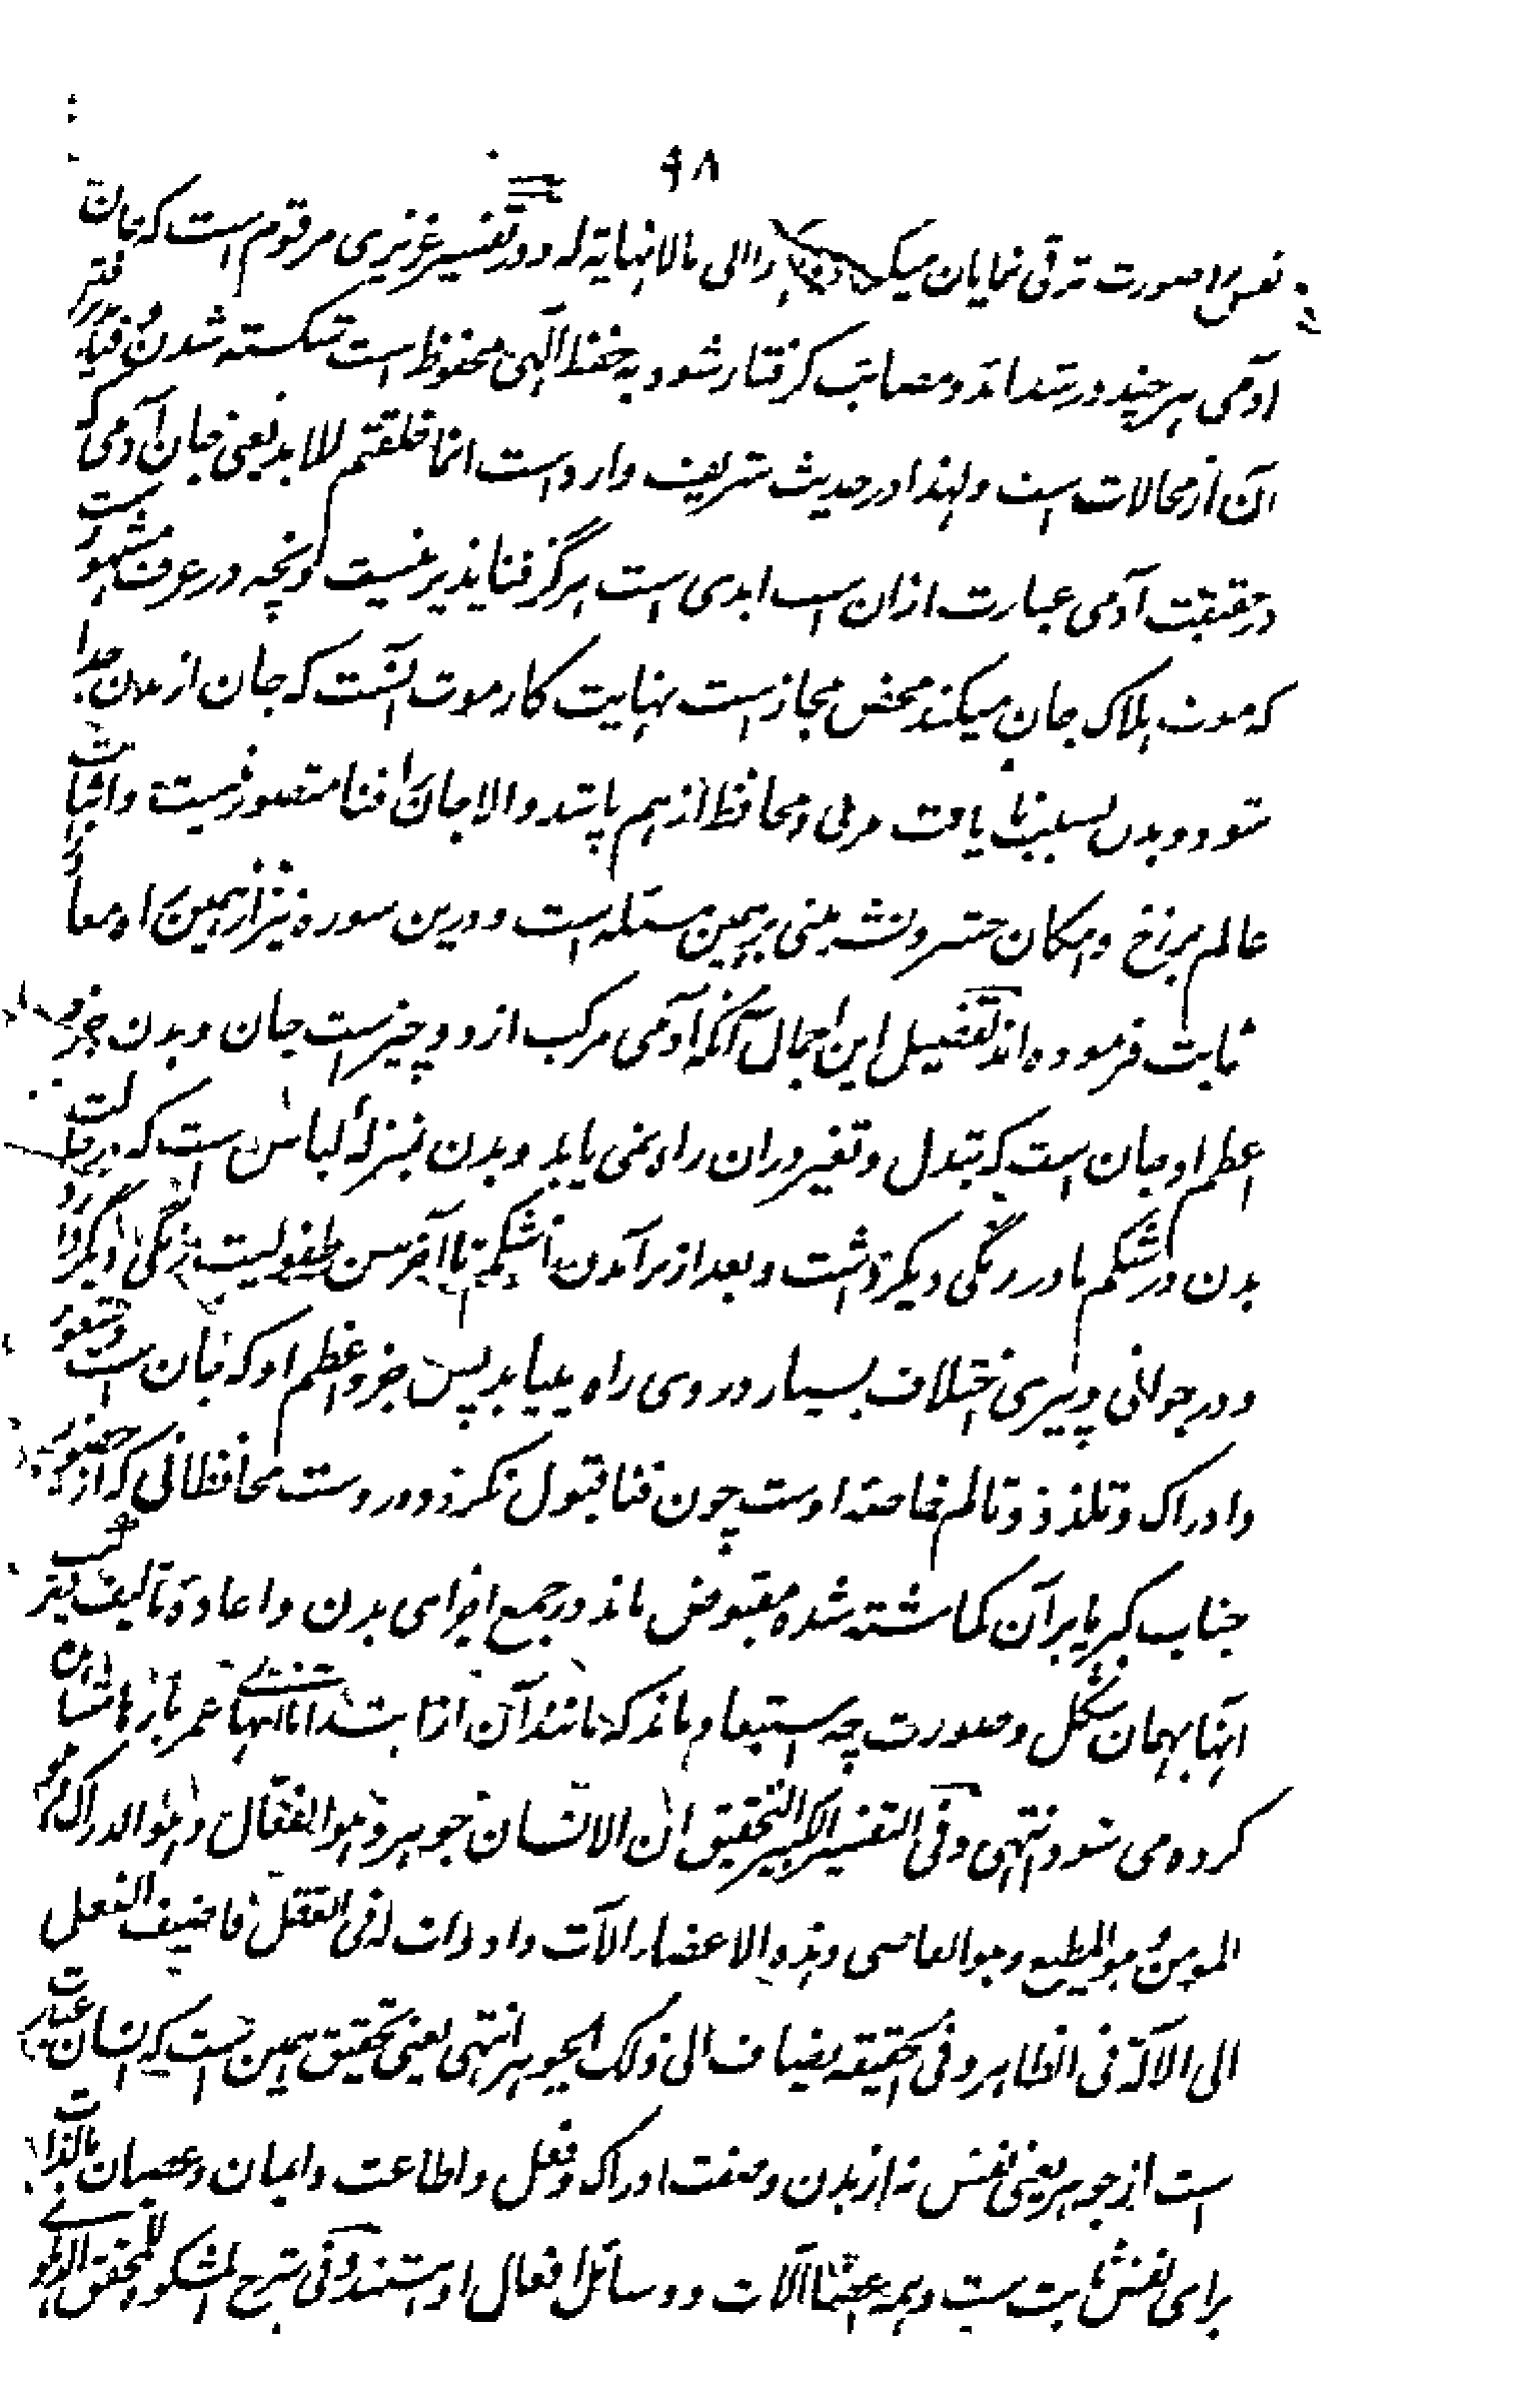 ۹۸
نفس را صورت ترقی نمایان میکند الی مالا نهایة له و در تفسیر عزیزی مرقوم است که جان
آدمی هر چند در شداند و مصائب گرفتار شود به حفظ الٰهی محفوظ است شکسته شدن و فنا پذیرفتن
آن از محالات است و لهذا در حدیث شریف وارد است انما خلقتم للابد یعنی جان آدمی که
در حقیقت آدمی عبارت از ان است ابدی است هرگز فنا پذیر نیست و آنچه در عرف مشهور است
که موت هلاک جان میکند محض مجاز است نهایت کار موت آنست که جان از بدن جدا
شود و بدن بسبب نا یافت مربی و محافظ از هم پاشد و الا جان را فنا متصور نیست و اثبات
عالم برزخ و امکان حشر و نشر مبنی بر همین مسئله است و درین سوره نیز از همین راه معاد را
ثابت فرموده اند تفصیل این اجمال آنکه آدمی مرکب از دو چیز است جان و بدن جزو
اعظم او جان است که تبدل و تغیر در ان راه نمی یابد و بدن بمنزله لباس است که در حالت
بدن در شکم مادر رنگی دیگر داشت و بعد از برآمدن از شکم تا آخر سن طفولیت رنگی دیگر دارد
و در جوانی و پیری اختلاف بسیار در وی راه مییابد پس جزو اعظم او که جان است و شعور
و ادراک و تلذذ و تالم خاصه اوست چون فنا قبول نکرد و در دست محافظانی که از حضور
جناب کبریا بر آن گماشته شده مقبوض ماند در جمع اجزای بدن و اعاده تالیف و ترکیب
آنها بهمان شکل و صورت چه استبعاد ماند که مانند آن از ابتدا تا انتهای عمر بارها مشاهده
کرده می شود انتهی و فی التفسیر الکبیر التحقیق ان الانسان جوهر و هو الفعّال و هو الدراک و هو
المومن و هو المطیع و هو العاصی و هذه الاعضاء آلات و ادوات له فی الفعل فاضیف الفعل
الی الآلة فی الظاهر و فی الحقیقة یضاف الی ذلک الجوهر انتهی یعنی تحقیق همین است که انسان عبارت
است از جوهر یعنی نفس نه از بدن و صفت ادراک و فعل و اطاعت و ایمان و عصیان بالذات
برای نفس ثابت ست و همه اعضا آلات و وسائل افعال او هستند و فی شرح المشکوة للمحقق الدهلوی